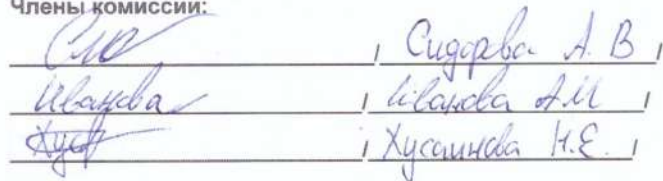 Члены комиссии:
/ Сидорова А. В /
Иванова / Иванова А.М /
/ Хусаинова Н.Е. /